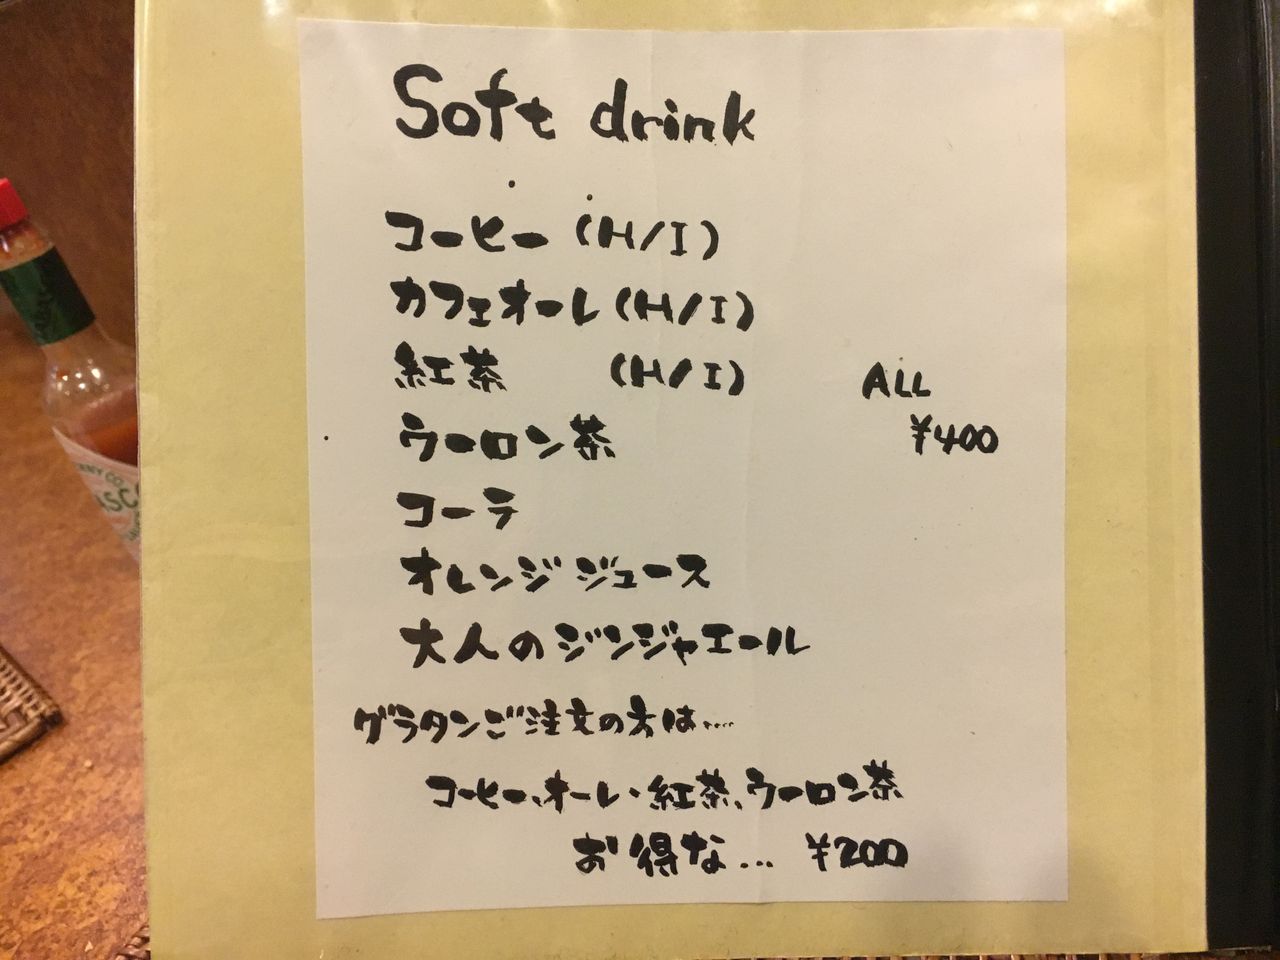 Soft drink
コーヒー (H/I)
カフェオーレ (H/I)
紅茶 (H/I)
ALL
ウーロン茶
¥400
コーラ
オレンジジュース
大人のジンジャエール
グラタンご注文の方は....
コーヒー、オーレ・紅茶、ウーロン茶
お得な... ¥200